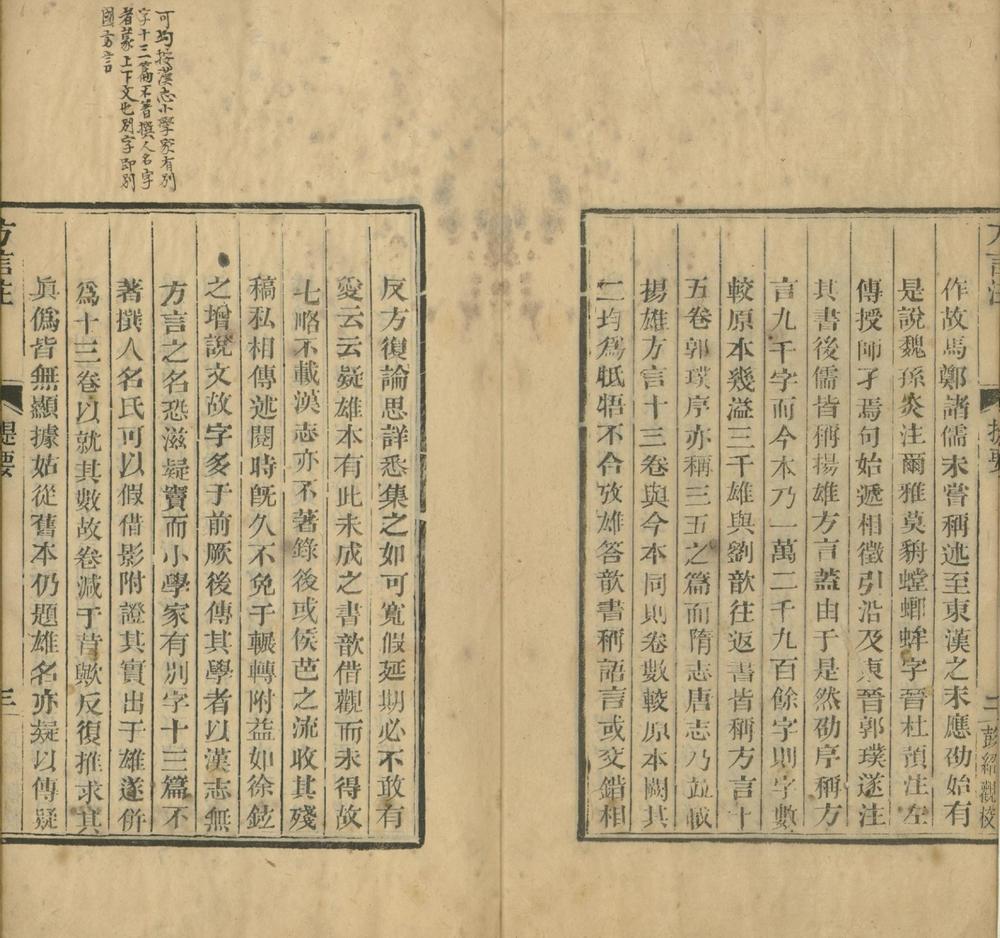 方言注
提要
二
彭紹觀校
作故馬鄭諸儒未嘗稱述至東漢之末應劭始有
是說魏孫炎注爾雅莫貈螳蜋蛑字晉杜預注左
傳授師孑焉句始遞相徵引沿及東晉郭璞遂注
其書後儒皆稱揚雄方言蓋由于是然劭序稱方
言九千字而今本乃一萬二千九百餘字則字數
較原本幾溢三千雄與劉歆往返書皆稱方言十
五卷郭璞序亦稱三五之篇而隋志唐志乃並載
揚雄方言十三卷與今本同則卷數較原本闕其
二均爲牴牾不合攷雄答歆書稱語言或交錯相
反方復論思詳悉集之如可寬假延期必不敢有
愛云云疑雄本有此未成之書歆借觀而未得故
七略不載漢志亦不著錄後或侯芭之流收其殘
稿私相傳述閱時旣久不免于輾轉附益如徐鉉
之增說文故字多于前厥後傳其學者以漢志無
方言之名恐滋疑竇而小學家有別字十三篇不
著撰人名氏可以假借影附證其實出于雄遂併
爲十三卷以就其數故卷減于昔歟反復推求其
眞僞皆無顯據姑從舊本仍題雄名亦疑以傳疑
可均按漢志小學家有別
字十三篇不著撰人名字
者蒙上下文也別字即別
國方言
方言注
提要
三